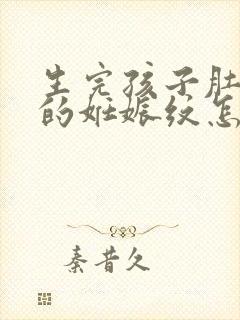 生完孩子肚
的妊娠纹怎
秦昔久